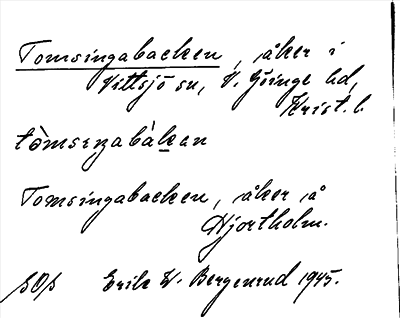 Tomsingabacken, åker i
Vittsjö sn, V. Göinge hd,
Krist. l.
tòmsiŋabàkan
Tomsingabacken, åker å
Hjortholm.
SOS Erik W. Bergenrud 1945.